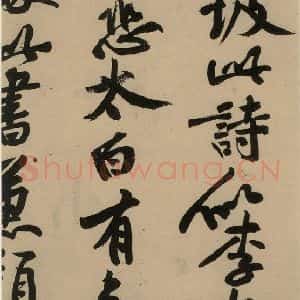 坡此詩似李
恐太白有
此書兼顏
Shufawang.CN